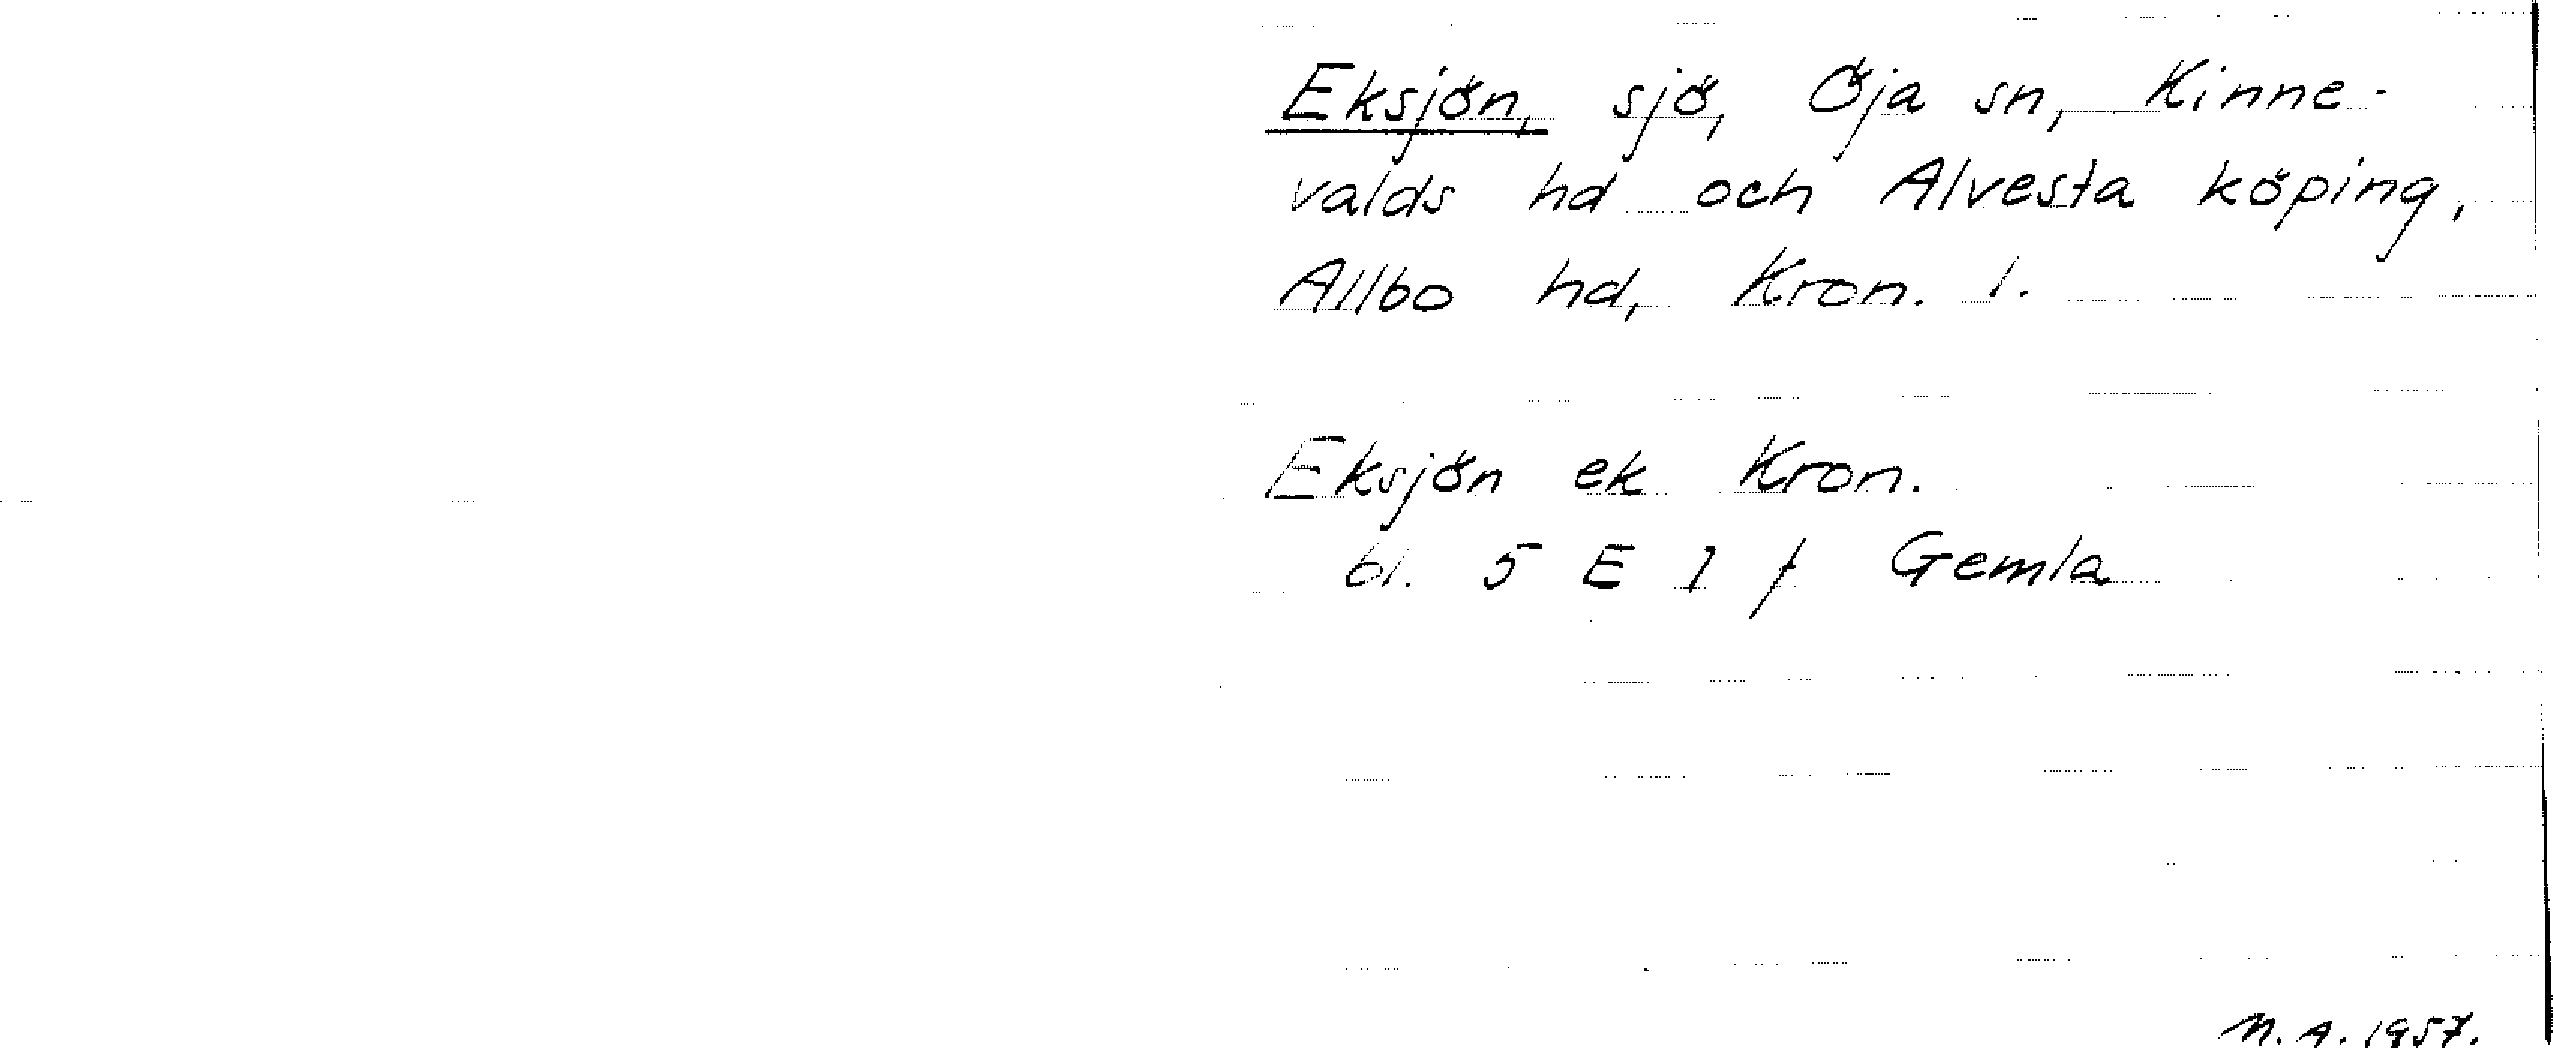 Eksjön, sjö, Öja sn, Kinne-
valds hd och Alvesta köping,
Allbo hd, Kron. l.
Eksjön ek Kron.
bl. 5 E 1 f Gemla
N. A. 1957.